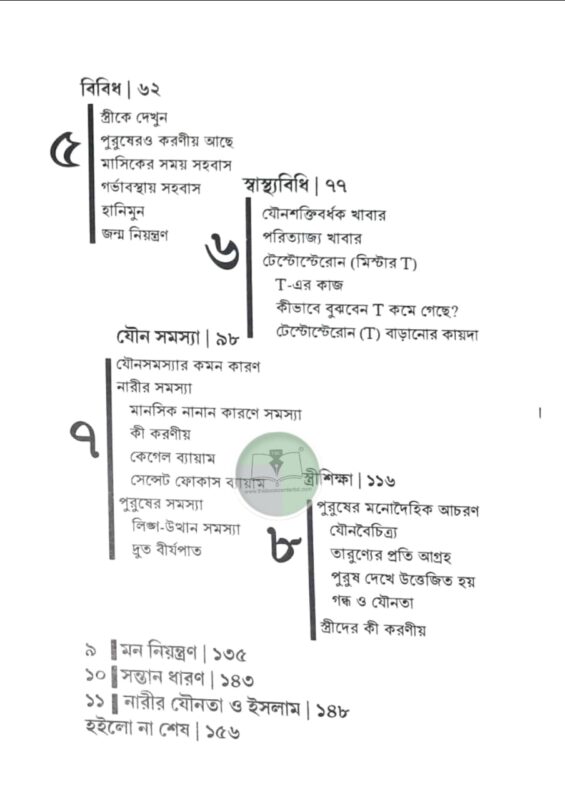 বিবিধ | ৬২
৫
স্ত্রীকে দেখুন
পুরুষেরও করণীয় আছে
মাসিকের সময় সহবাস
গর্ভাবস্থায় সহবাস
হানিমুন
জন্ম নিয়ন্ত্রণ
স্বাস্থ্যবিধি | ৭৭
৬
যৌনশক্তিবর্ধক খাবার
পরিত্যাজ্য খাবার
টেস্টোস্টেরোন (মিস্টার T)
T-এর কাজ
কীভাবে বুঝবেন T কমে গেছে?
টেস্টোস্টেরোন (T) বাড়ানোর কায়দা
যৌন সমস্যা | ৯৮
৭
যৌনসমস্যার কমন কারণ
নারীর সমস্যা
মানসিক নানান কারণে সমস্যা
কী করণীয়
কেগেল ব্যায়াম
সেন্সেট ফোকাস ব্যায়াম
পুরুষের সমস্যা
লিঙ্গ-উত্থান সমস্যা
দ্রুত বীর্যপাত
স্ত্রীশিক্ষা | ১১৬
৮
পুরুষের মনোদৈহিক আচরণ
যৌনবৈচিত্র্য
তারুণ্যের প্রতি আগ্রহ
পুরুষ দেখে উত্তেজিত হয়
গন্ধ ও যৌনতা
স্ত্রীদের কী করণীয়
৯ মন নিয়ন্ত্রণ | ১৩৫
১০ সন্তান ধারণ | ১৪৩
১১ নারীর যৌনতা ও ইসলাম | ১৪৮
হইলো না শেষ | ১৫৬